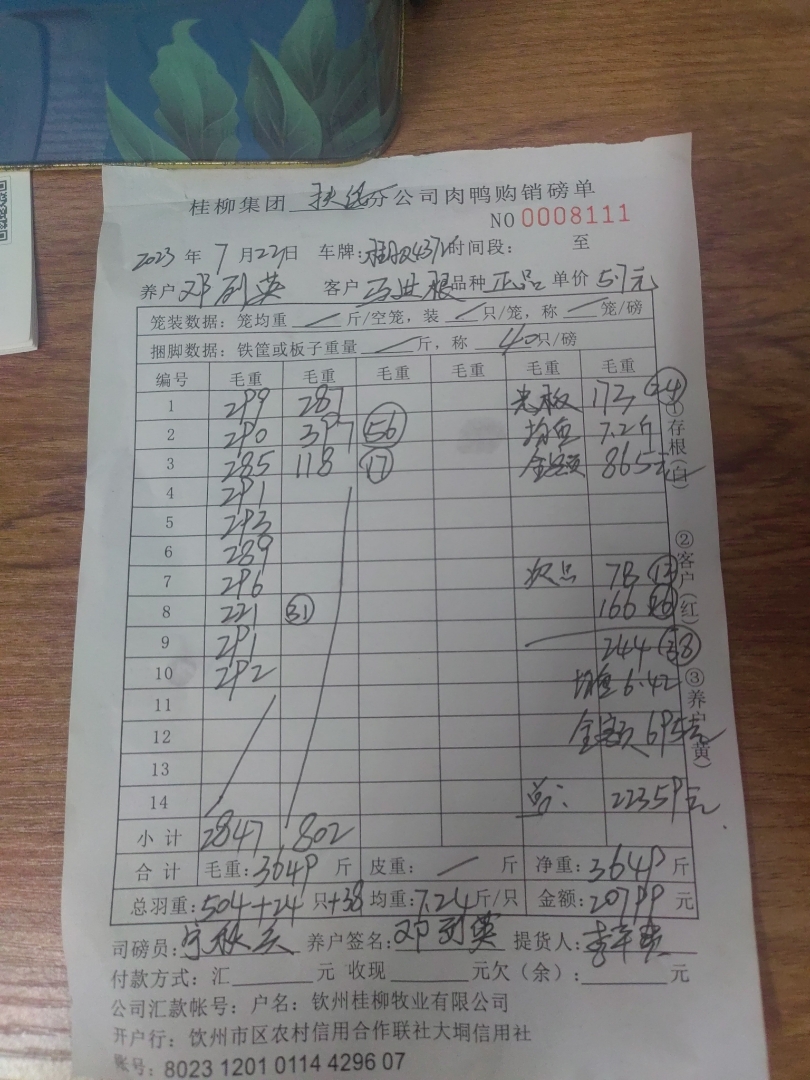 桂柳集团 扶绥分公司肉鸭购销磅单
NO 0008111
2023 年 7 月 22日 车牌: 时间段: 至
养户 邓列英 客户 马世根 品种 正品 单价 5.7元
笼装数据: 笼均重 / 斤/空笼, 装 / 只/笼, 称 / 笼/磅
捆脚数据: 铁筐或板子重量 / 斤, 称 40只/磅
编号 毛重 毛重 毛重 毛重 毛重 毛重
1 299 287 光板 173 24
2 290 397 56 均重 7.2斤
3 285 118 17 金额 865元
4 291
5 293
6 289
7 296 次品 78 12
8 221 31 166 26
9 291 244 38
10 292 均重 6.42
11
12 金额 695元
13
14 总: 22359元
小计 2847 802
合计 毛重: 3649 斤 皮重: / 斤 净重: 3649 斤
总羽重: 504+24 只+38 均重: 7.24斤/只 金额: 20799 元
司磅员: 养户签名: 邓列英 提货人:
付款方式: 汇 元 收现 元欠(余): 元
公司汇款帐号: 户名: 钦州桂柳牧业有限公司
开户行: 钦州市区农村信用合作联社大垌信用社
账号: 8023 1201 0114 4296 07
①存根(白)
②客户(红)
③养户(黄)